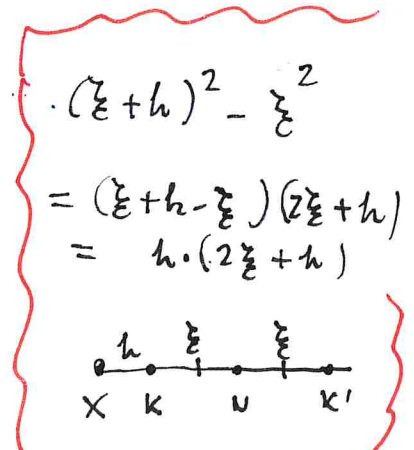 (ξ+h)² - ξ²
= (ξ+h-ξ)(2ξ+h)
= h·(2ξ+h)
h ξ ξ
X K N K'